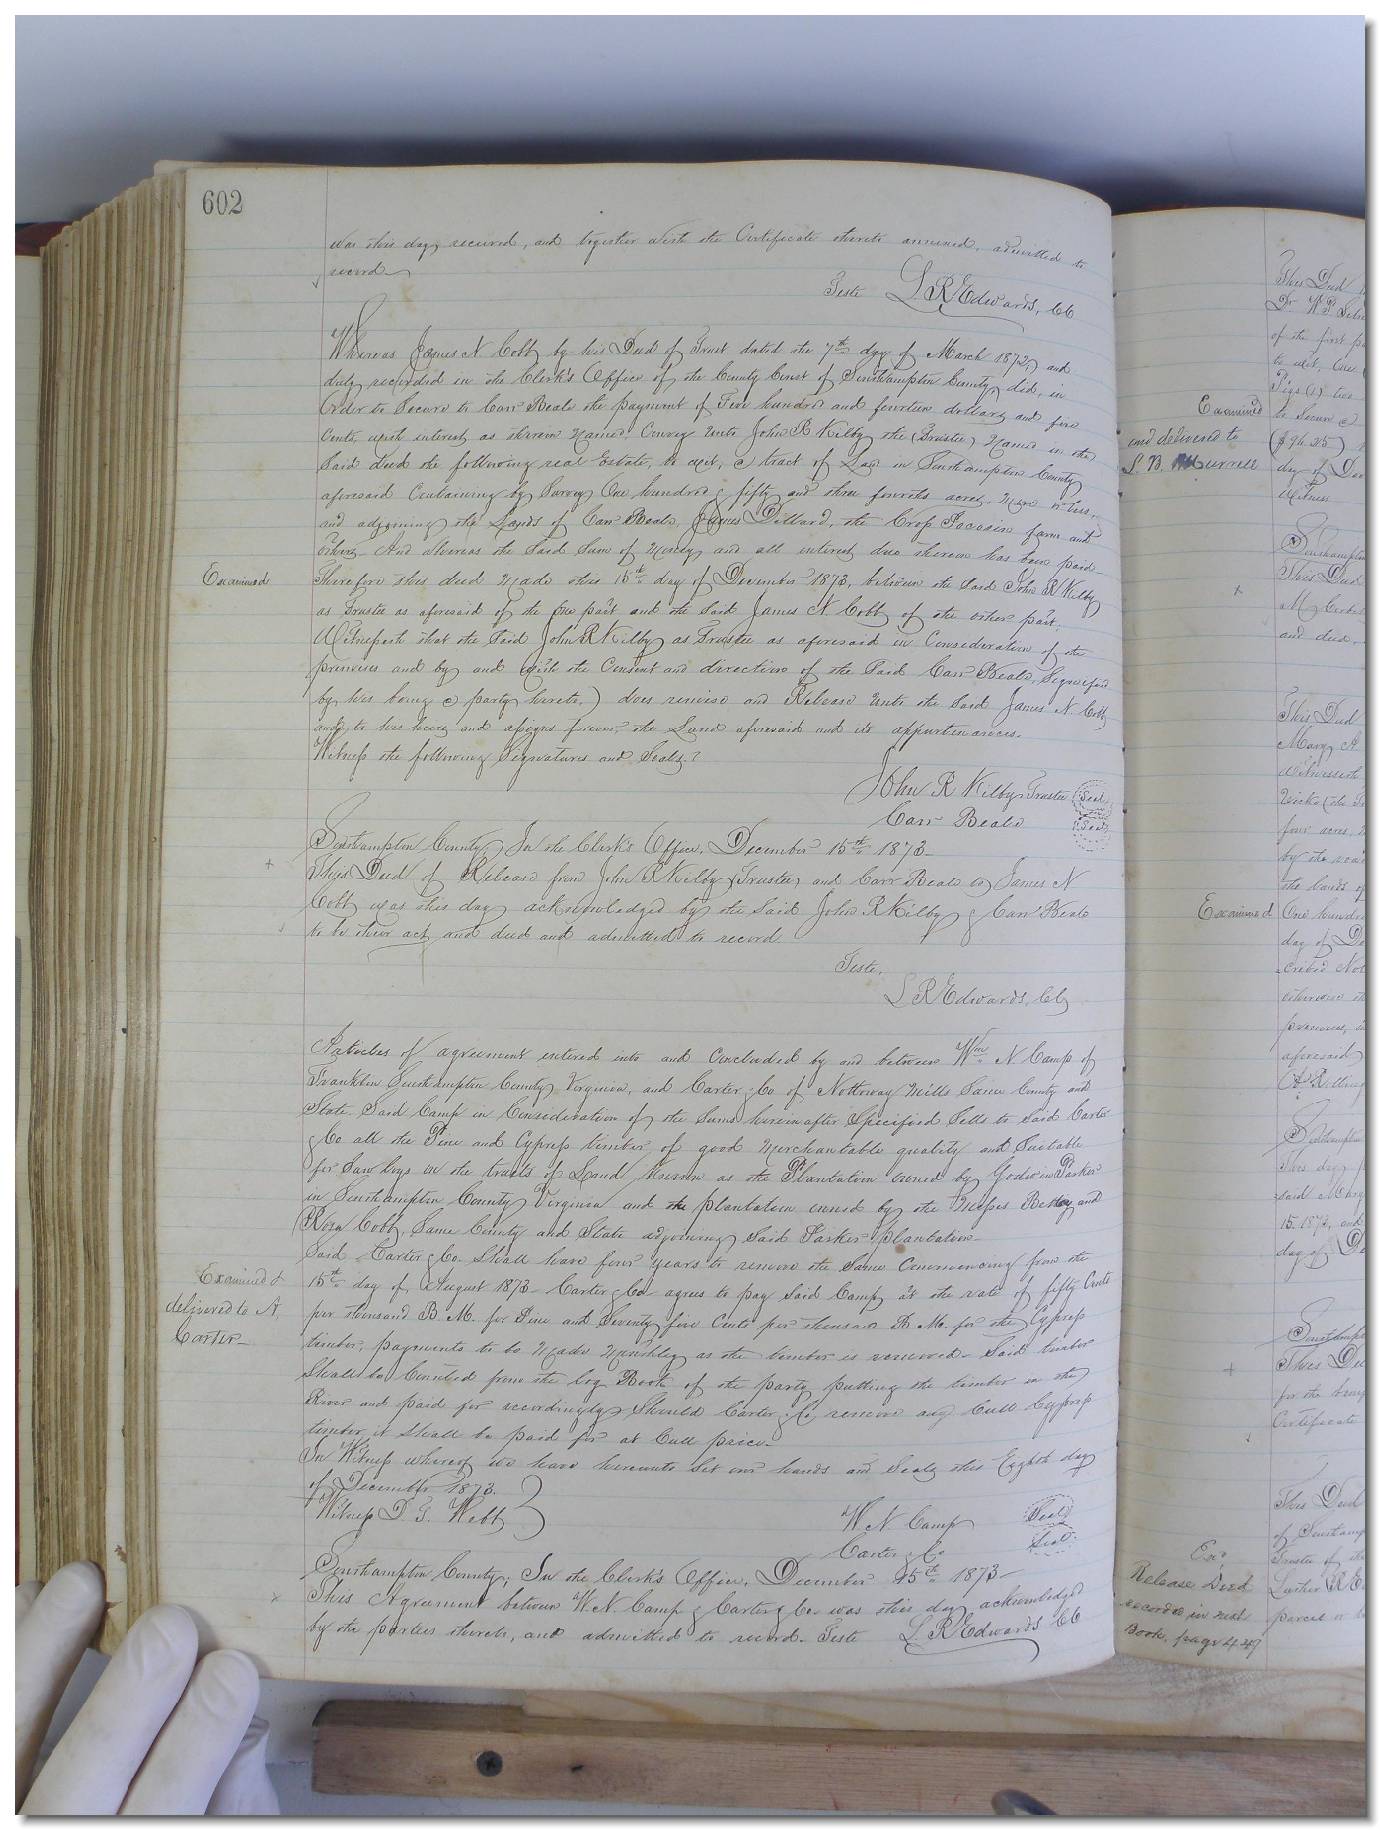 602
was this day received, and together with the Certificate thereto annexed, admitted to
record
Teste L R Edwards, CC
Whereas James N Cobb by his Deed of Trust dated the 7th day of March 1872, and
duly recorded in the Clerk's Office of the County Court of Southampton County, did, in
Order to Secure to Carr Beale the payment of Five hundred and fourteen dollars and five
Cents, with interest as therein Named, Convey unto John R Kilby the (Trustee) Named in the
Said deed the following real Estate, to wit, a tract of Land in Southampton County
aforesaid Containing by Survey One hundred & fifty and three fourths acres, More or less,
and adjoining the Lands of Carr Beale, James Dillard, the Crop Pocosin farm and
others. And Whereas the Said Sum of Money, and all interest due thereon has been paid
Examined
Therefore this deed Made this 15th day of December 1873, between the Said John R Kilby
as Trustee as aforesaid of the One part and the Said James N. Cobb of the other part.
Witnesseth that the Said John R Kilby as Trustee as aforesaid in Consideration of the
premises and by and with the Consent and direction of the Said Carr Beale, Signified
by his being a party hereto,) does remise and Release unto the Said James N. Cobb
and to his heirs and assigns forever, the Land aforesaid and its appurtenances.
Witness the following Signatures and Seals.
John R Kilby Trustee Seal
Carr Beale Seal
Southampton County, In the Clerk's Office, December 15th 1873
This Deed of Release from John R Kilby (Trustee) and Carr Beale to James N
Cobb was this day acknowledged by the Said John R Kilby & Carr Beale
to be their act and deed and admitted to record.
Teste,
L R Edwards, Clk
Articles of agreement entered into and Concluded by and between Wm N. Camp of
Franklin Southampton County, Virginia, and Carter & Co of Nottoway Mills Same County and
State. Said Camp in Consideration of the Sums hereinafter Specified Sells to Said Carter
& Co all the Pine and Cypress timber of good Merchantable quality and Suitable
for Saw logs on the tracts of Land known as the Plantation owned by Godwin Parker
in Southampton County Virginia and the plantation owned by the Misses Betsy and
Roza Cobb, Same County and State adjoining Said Parker plantation
Said Carter & Co. Shall have four years to remove the Same Commencing from the
Examined &
delivered to A.
Carter
15th day of August 1873 Carter & Co agrees to pay Said Camp at the rate of fifty Cents
per thousand B. M. for Pine and Seventy five Cents per thousand B. M. for the Cypress
timber, payments to be Made Monthly as the timber is removed. Said timber
Shall be Counted from the log Book of the party putting the timber in the
River and paid for accordingly. Should Carter & Co remove any Cull Cypress
timber it Shall be paid for at Cull price.
In Witness whereof we have hereunto Set our hands and Seals this Eighth day
of December 1873.
Witness D G. Webb
W N Camp Seal
Carter & Co Seal
Southampton County; In the Clerk's Office, December 15th 1873
This Agreement between W N. Camp & Carter & Co was this day acknowledged
by the parties thereto, and admitted to record. Teste L. R Edwards CC
This Deed
Dr W. P.
of the first
to wit, One
Pigs (1) two
Examined
and delivered to
L. B. Murrell
to Secure
($96.25)
day of
Witness
Southampton
This Deed
and deed.
This Deed
Mary A
Witnesseth
four acres,
by the
the lands of
Examined
One hundred
day of De
otherwise
aforesaid
Southampton
This day
said Mary
15. 1873, and
day of De
Southampton
This Deed
for the
Certificate
This Deed
of Southampton
Trustee of the
Luther R E
parcel or
Ex.
Release Deed
recorded in next
Book, page 449